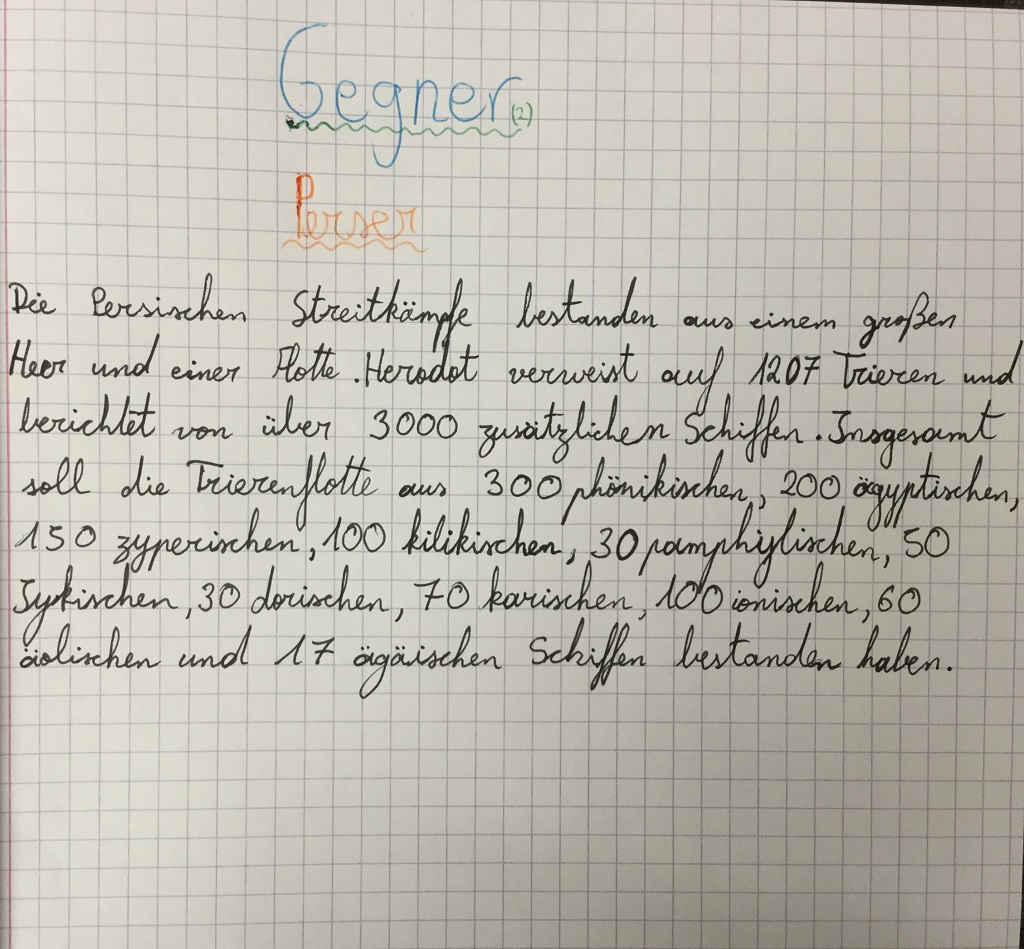 Gegner (2)
Perser
Die Persischen Streitkämpfe bestanden aus einem großen
Heer und einer Flotte. Herodot verweist auf 1207 Trieren und
berichtet von über 3000 zusätzlichen Schiffen. Insgesamt
soll die Trierenflotte aus 300 phönikischen, 200 ägyptischen,
150 zyperischen, 100 kilikischen, 30 pamphylischen, 50
lykischen, 30 dorischen, 70 karischen, 100 ionischen, 60
äolischen und 17 ägäischen Schiffen bestanden haben.